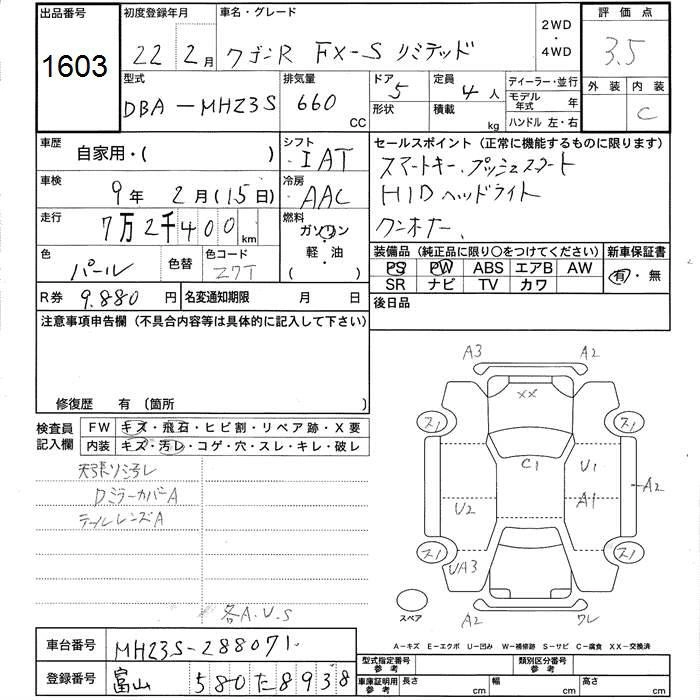 出品番号
1603
初度登録年月
22年2月
車名・グレード
ワゴンR FX-S リミテッド
2WD
・
4WD
評価点
3.5
外装 内装
C
型式
DBA-MH23S
排気量
660 CC
ドア 5
形状
定員 4人
積載 kg
ディーラー・並行
モデル年式 年
ハンドル 左・右
車歴
自家用・( )
シフト
IAT
セールスポイント (正常に機能するものに限ります)
スマートキー プッシュスタート
HIDヘッドライト
ワンオーナー、
車検
9年 2月(15日)
冷房
AAC
走行
7万2千400km
燃料
ガソリン
軽・油
( )
色
パール
色替
色コード
Z7T
装備品 (純正品に限り○をつけてください)
PS PW ABS エアB AW
SR ナビ TV カワ
新車保証書
有・無
R券 9.880円
名変通知期限 月 日
後日品
注意事項申告欄 (不具合内容等は具体的に記入して下さい)
修復歴 有 (箇所
検査員記入欄
FW キズ・飛石・ヒビ割・リペア跡・X要
内装 キズ・汚レ・コゲ・穴・スレ・キレ・破レ
Dミラーカバー A
テールレンズA
各A.U.S
A3
A2
XX
ス1
ス1
C1
U1
A1
A2
U2
UA3
ス1
ス1
A2
ワレ
スペア
A-キズ E-エクボ U-凹み W-補修跡 S-サビ C-腐食 XX-交換済
車台番号
MH23S-288071
登録番号
富山 580 た 8938
型式指定番号 参考
類別区分番号 参考
車庫証明用 参考
長さ cm
幅 cm
高さ cm